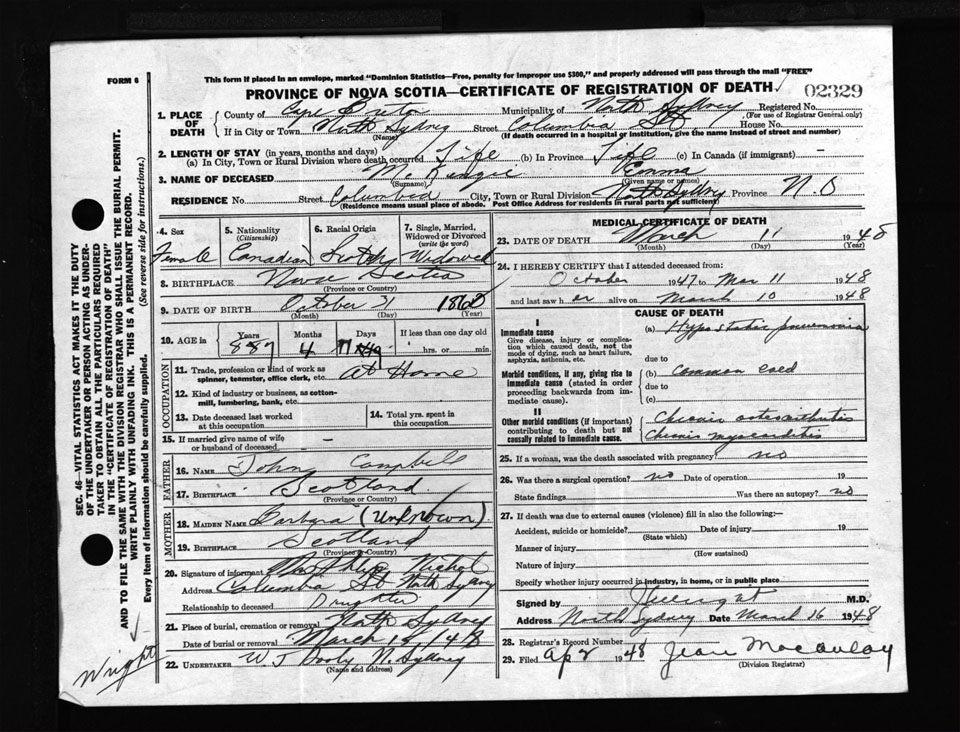 FORM 6
This form if placed in an envelope, marked "Dominion Statistics—Free, penalty for improper use $300," and properly addressed will pass through the mail "FREE"
PROVINCE OF NOVA SCOTIA—CERTIFICATE OF REGISTRATION OF DEATH
02329
1. PLACE OF DEATH
County of Cape Breton Municipality of North Sydney Registered No.
(For use of Registrar General only)
If in City or Town North Sydney Street Columbia St House No.
(Name) (If death occurred in a hospital or institution, give the name instead of street and number)
2. LENGTH OF STAY (in years, months and days)
(a) In City, Town or Rural Division where death occurred Life (b) In Province Life (c) In Canada (if immigrant) —
3. NAME OF DECEASED McKenzie Emma
(Surname) (Given name or names)
RESIDENCE No. Street Columbia City, Town or Rural Division North Sydney Province N.S
(Residence means usual place of abode. Post Office Address for residents in rural parts not sufficient)
4. Sex Female
5. Nationality (Citizenship) Canadian
6. Racial Origin Scotch
7. Single, Married, Widowed or Divorced (write the word) Widowed
8. BIRTHPLACE Nova Scotia
(Province or Country)
9. DATE OF BIRTH October 31 1860
(Month) (Day) (Year)
10. AGE in Years Months Days If less than one day old
887 4 11 hrs. or min.
OCCUPATION
11. Trade, profession or kind of work as spinner, teamster, office clerk, etc. At Home
12. Kind of industry or business, as cotton-mill, lumbering, bank, etc.
13. Date deceased last worked at this occupation
14. Total yrs. spent in this occupation
15. If married give name of wife or husband of deceased —
FATHER
16. NAME John Campbell
17. BIRTHPLACE Scotland
(Province or Country)
MOTHER
18. MAIDEN NAME Barbara (Unknown)
19. BIRTHPLACE Scotland
(Province or Country)
20. Signature of informant Mrs Philip Nichol
Address Columbia St North Sydney
Relationship to deceased Daughter
21. Place of burial, cremation or removal North Sydney
Date of burial or removal March 14/48
22. UNDERTAKER W J Dooly N. Sydney
MEDICAL CERTIFICATE OF DEATH
23. DATE OF DEATH March 11 1948
(Month) (Day) (Year)
24. I HEREBY CERTIFY that I attended deceased from:
October 1947 to Mar 11 1948
and last saw her alive on March 10 1948
CAUSE OF DEATH
I
Immediate cause
Give disease, injury or complication which caused death, not the mode of dying, such as heart failure, asphyxia, asthenia, etc.
(a) Hypostatic pneumonia
due to
Morbid conditions, if any, giving rise to immediate cause (stated in order proceeding backwards from immediate cause).
(b) Common cold
due to
(c)
II
Other morbid conditions (if important) contributing to death but not causally related to immediate cause.
Chronic osteoarthritis
Chronic myocarditis
25. If a woman, was the death associated with pregnancy? no
26. Was there a surgical operation? no Date of operation 19
State findings Was there an autopsy? no
27. If death was due to external causes (violence) fill in also the following:—
Accident, suicide or homicide? Date of injury 19
(State which)
Manner of injury
(How sustained)
Nature of injury
Specify whether injury occurred in industry, in home, or in public place
Signed by M.D.
Address North Sydney Date March 16 1948
28. Registrar's Record Number
29. Filed Apr 2 1948 Jean Macaulay
(Division Registrar)
SEC. 46—VITAL STATISTICS ACT MAKES IT THE DUTY
OF THE UNDERTAKER OR PERSON ACTING AS UNDER-
TAKER TO OBTAIN ALL THE PARTICULARS REQUIRED
IN THE "CERTIFICATE OF REGISTRATION OF DEATH"
AND TO FILE THE SAME WITH THE DIVISION REGISTRAR WHO SHALL ISSUE THE BURIAL PERMIT.
WRITE PLAINLY WITH UNFADING INK. THIS IS A PERMANENT RECORD.
Every item of information should be carefully supplied. (See reverse side for instructions.)
Wright